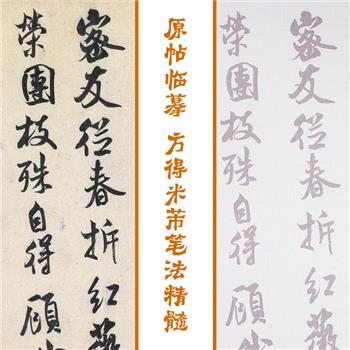 密友從春拆紅薇
榮團枝殊自得顧
原帖临摹 方得米芾笔法精髓
密友從春拆紅薇
榮團枝殊自得顧